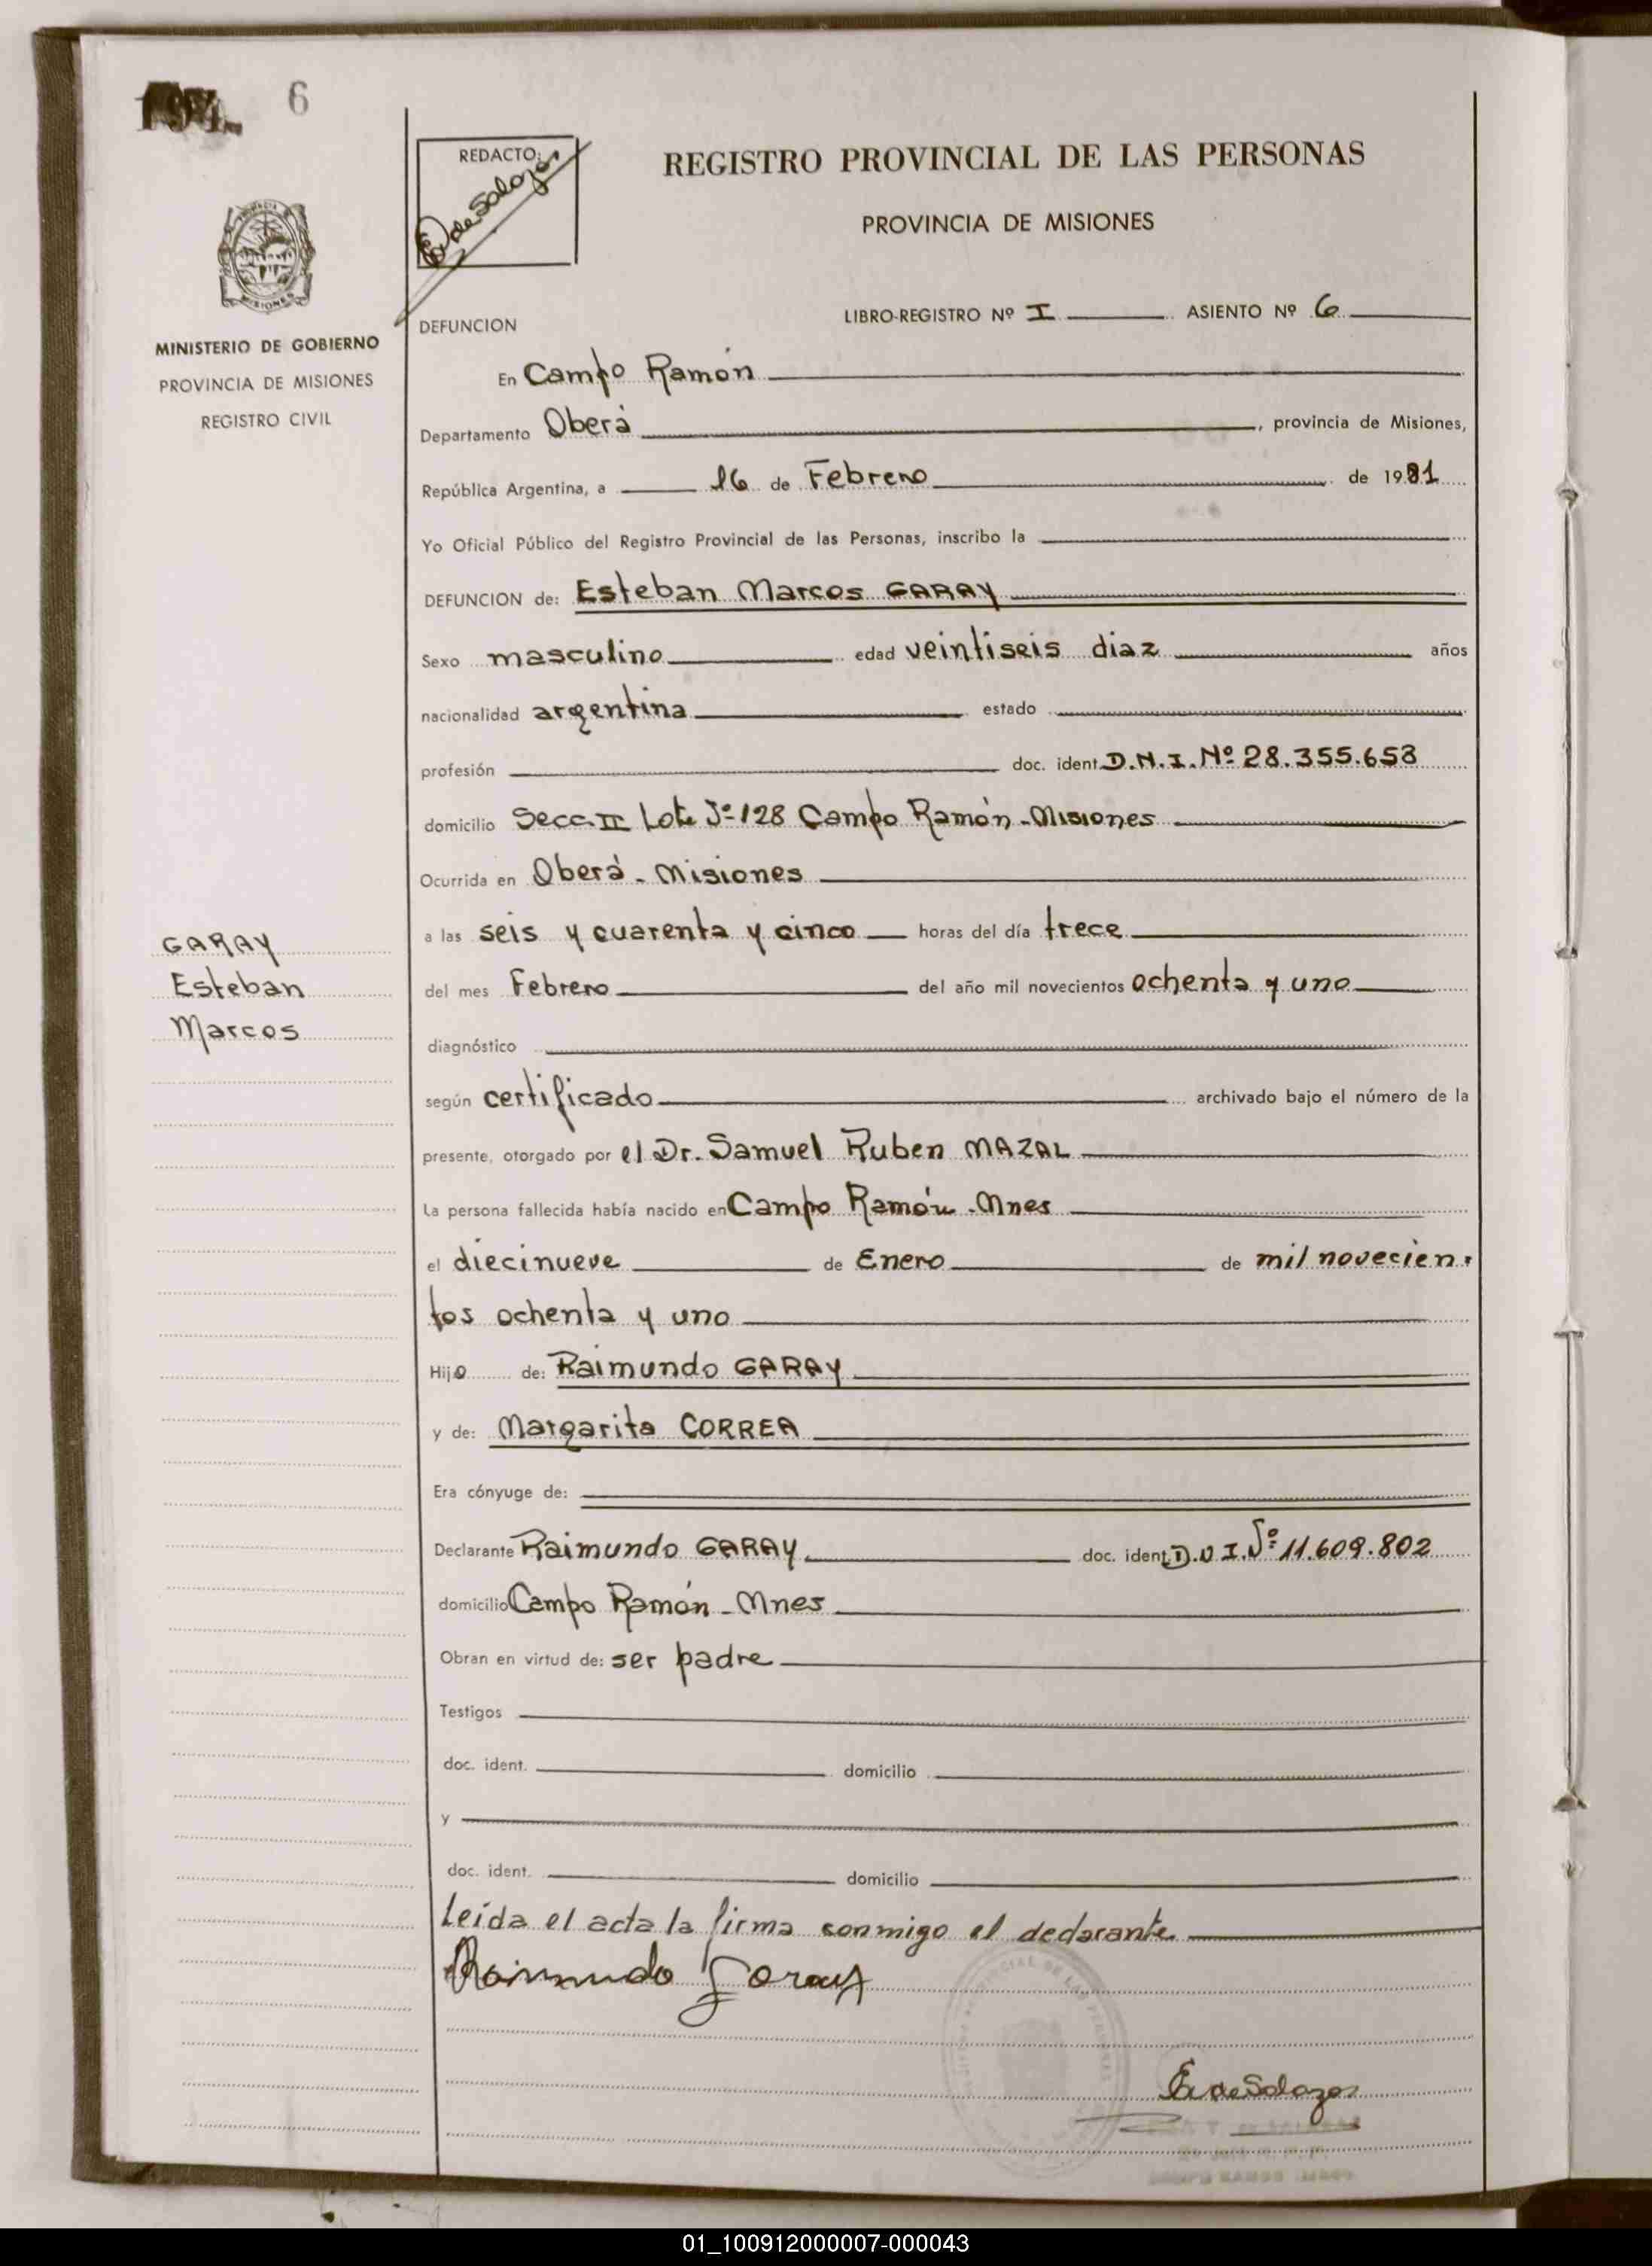 6
REDACTO:
E. de Salazar
REGISTRO PROVINCIAL DE LAS PERSONAS
PROVINCIA DE MISIONES
MISIONES
MINISTERIO DE GOBIERNO
PROVINCIA DE MISIONES
REGISTRO CIVIL
LIBRO-REGISTRO Nº I ASIENTO Nº 6
DEFUNCION
En Campo Ramón
Departamento Oberá, provincia de Misiones,
República Argentina, a 16 de Febrero de 1981
Yo Oficial Público del Registro Provincial de las Personas, inscribo la
DEFUNCION de: Esteban Marcos GARAY
Sexo masculino edad veintiseis diaz años
nacionalidad argentina estado
profesión doc. ident. D.N.I. Nº 28.355.653
domicilio Secc. II Lote Nº 128 Campo Ramón - Misiones
Ocurrida en Oberá - Misiones
a las seis y cuarenta y cinco horas del día trece
del mes Febrero del año mil novecientos ochenta y uno
diagnóstico
según certificado archivado bajo el número de la
presente, otorgado por el Dr. Samuel Ruben MAZAL
La persona fallecida había nacido en Campo Ramón - Mnes
el diecinueve de Enero de mil novecien-
tos ochenta y uno
Hijo de: Raimundo GARAY
y de: Margarita CORREA
Era cónyuge de:
Declarante Raimundo GARAY doc. ident. D.N.I. Nº 11.609.802
domicilio Campo Ramón - Mnes
Obran en virtud de: ser padre
Testigos
doc. ident. domicilio
y
doc. ident. domicilio
Leída el acta la firma conmigo el declarante
Raimundo Garay
E. de Salazar
GARAY
Esteban
Marcos
01_100912000007-000043